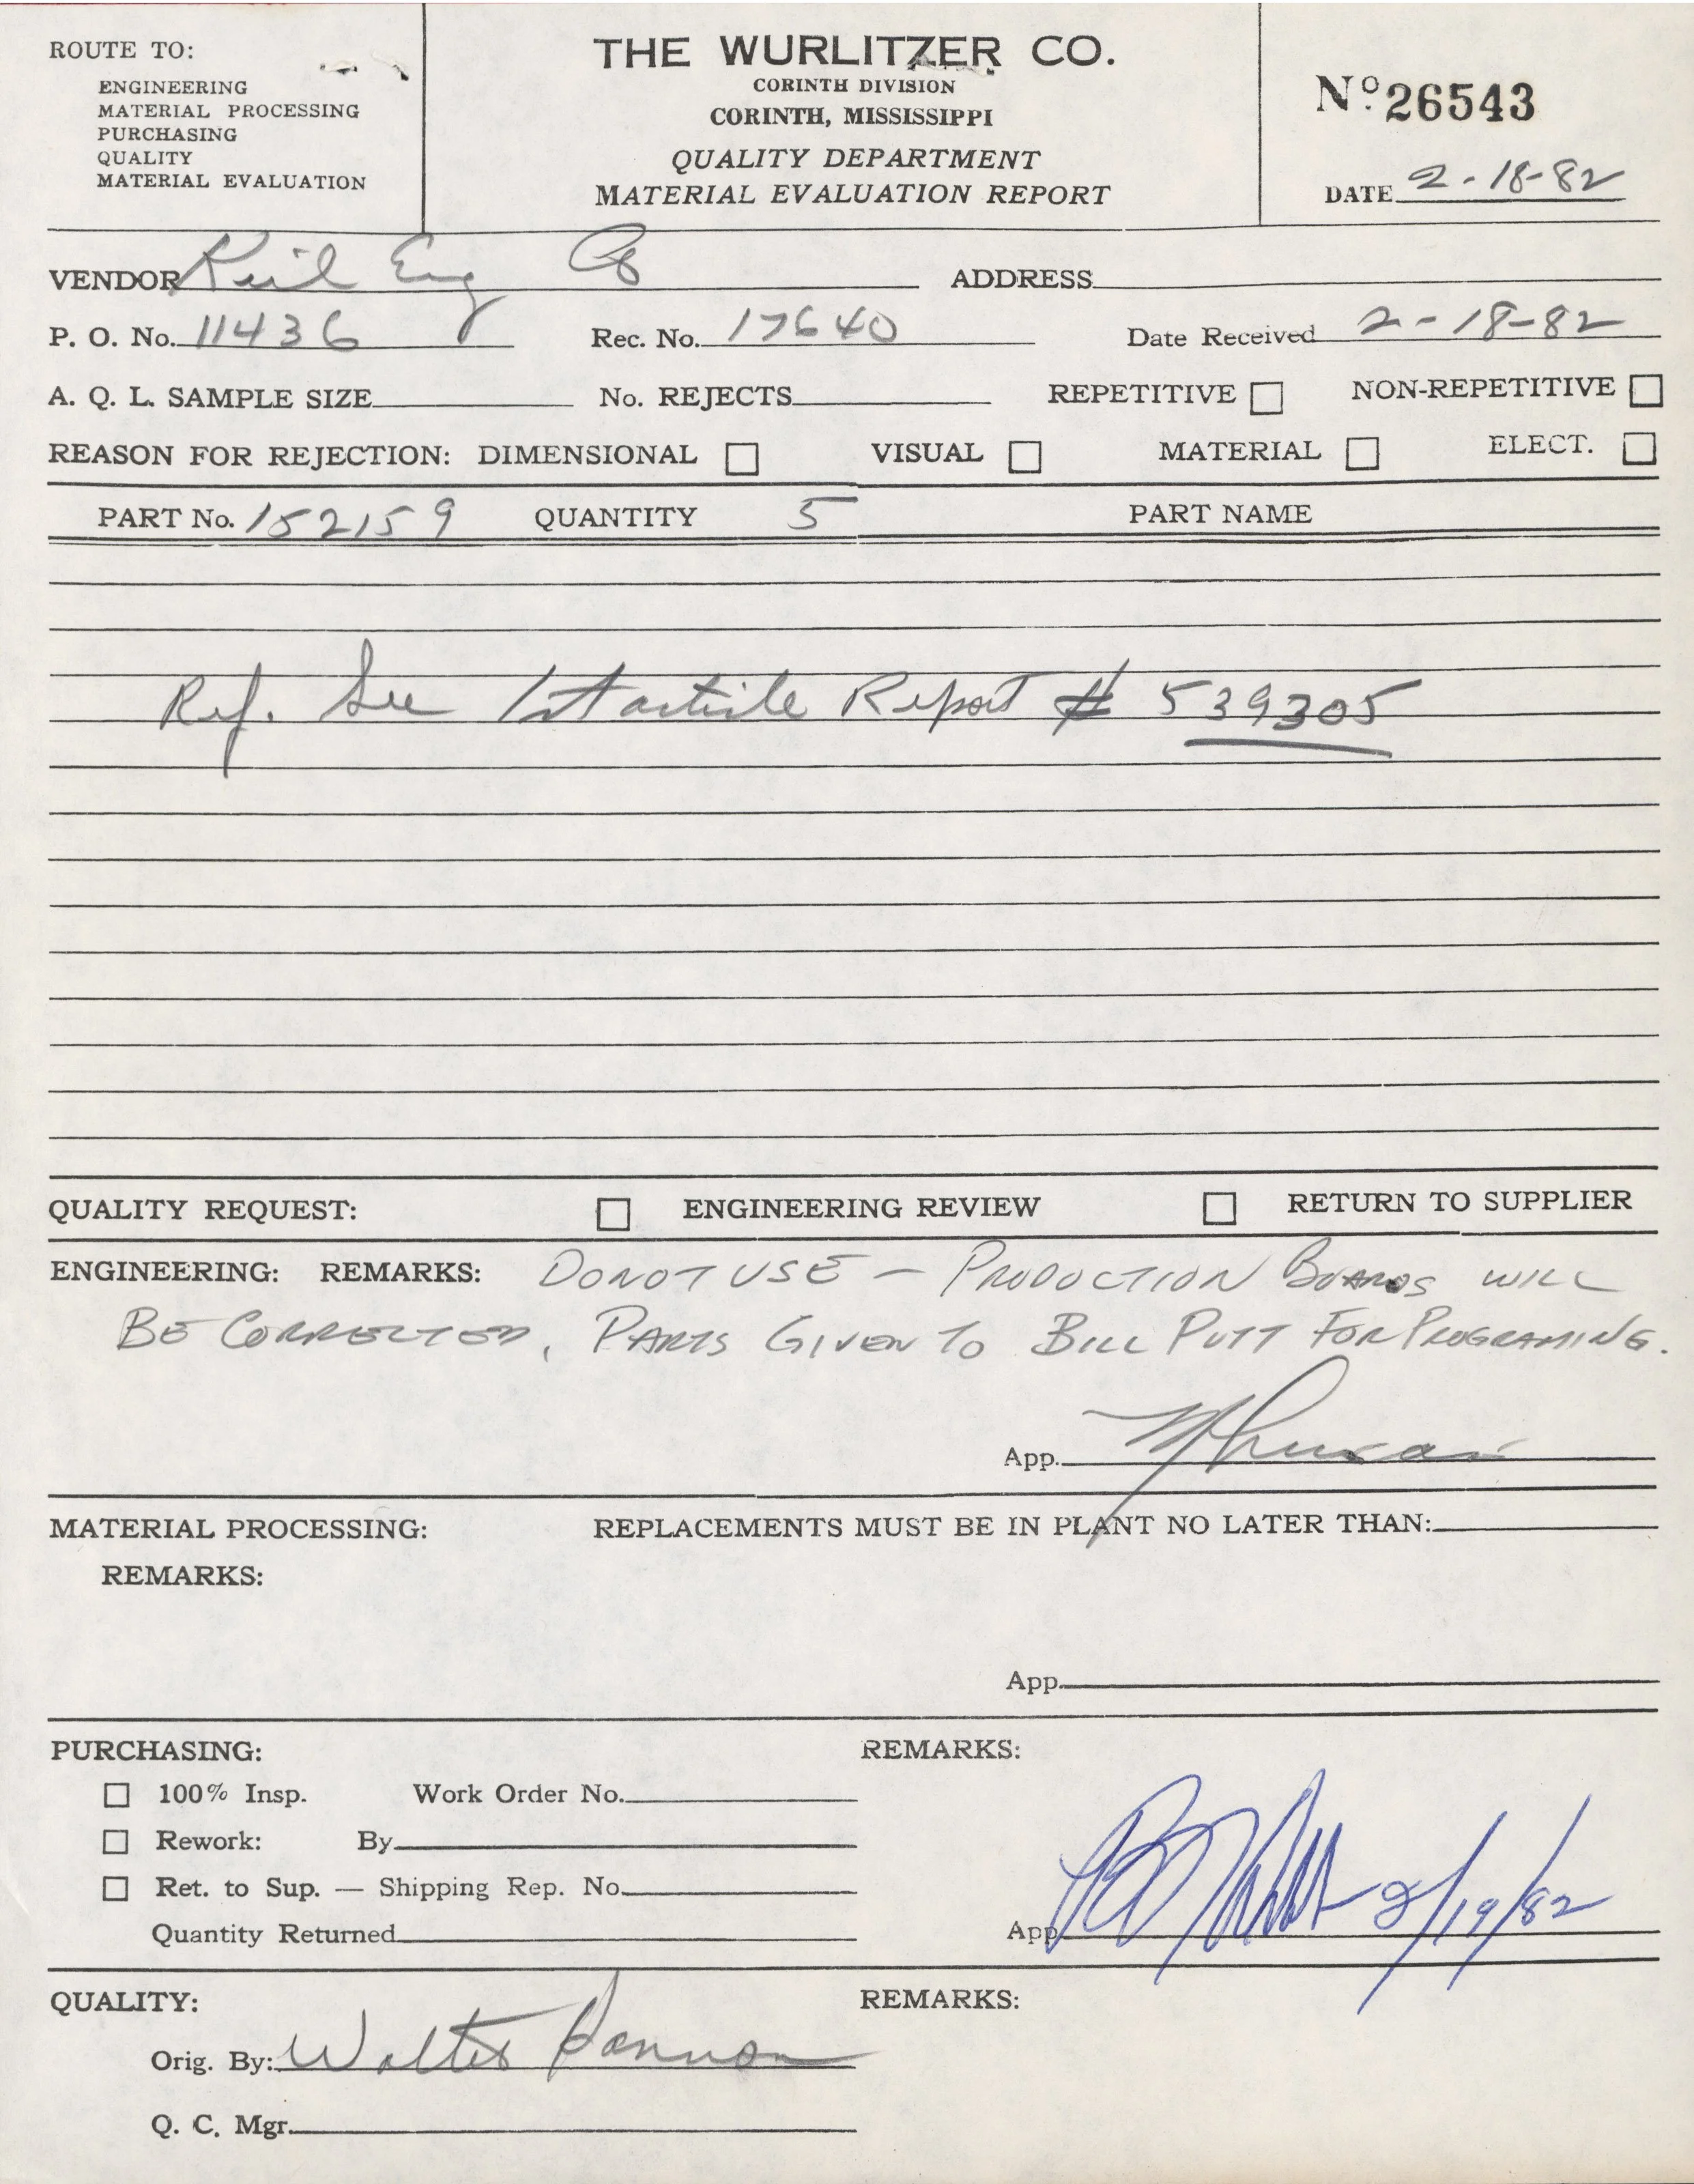 ROUTE TO:
ENGINEERING
MATERIAL PROCESSING
PURCHASING
QUALITY
MATERIAL EVALUATION
THE WURLITZER CO.
CORINTH DIVISION
CORINTH, MISSISSIPPI
QUALITY DEPARTMENT
MATERIAL EVALUATION REPORT
No 26543
DATE 2-18-82
VENDOR Keil Eng Co ADDRESS
P. O. No. 11436 Rec. No. 17640 Date Received 2-18-82
A. Q. L. SAMPLE SIZE No. REJECTS REPETITIVE NON-REPETITIVE
REASON FOR REJECTION: DIMENSIONAL VISUAL MATERIAL ELECT.
PART No. 152159 QUANTITY 5 PART NAME
Ref. See 1st article Report # 539305
QUALITY REQUEST: ENGINEERING REVIEW RETURN TO SUPPLIER
ENGINEERING: REMARKS: DO NOT USE — PRODUCTION BOARDS WILL
BE CORRECTED, PARTS GIVEN TO BILL PUTT FOR PROGRAMING.
App.
MATERIAL PROCESSING: REPLACEMENTS MUST BE IN PLANT NO LATER THAN:
REMARKS:
App.
PURCHASING: REMARKS:
100% Insp. Work Order No.
Rework: By
Ret. to Sup. — Shipping Rep. No.
Quantity Returned App 2/19/82
QUALITY: REMARKS:
Orig. By: Walter
Q. C. Mgr.